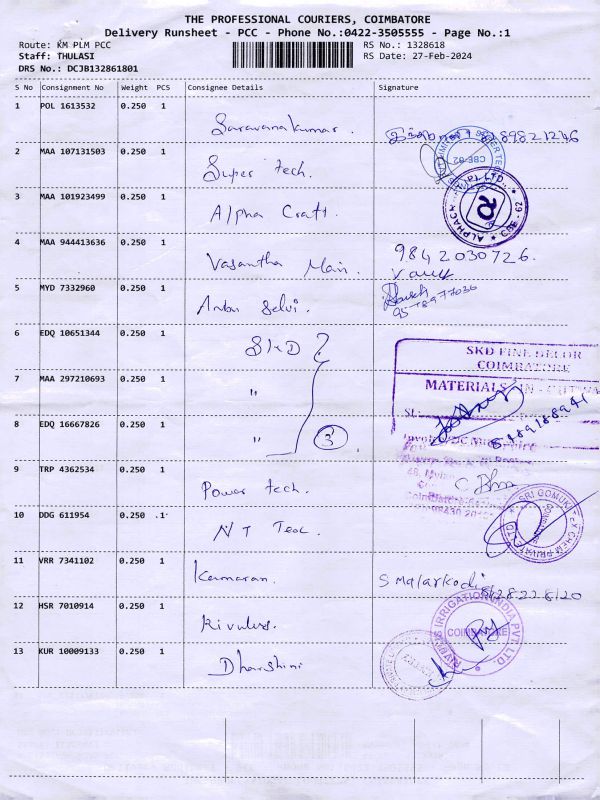 THE PROFESSIONAL COURIERS, COIMBATORE
Delivery Runsheet - PCC - Phone No.:0422-3505555 - Page No.:1
Route: KM PLM PCC RS No.: 1328618
Staff: THULASI RS Date: 27-Feb-2024
DRS No.: DCJB132861801
S No Consignment No Weight PCS Consignee Details Signature
1 POL 1613532 0.250 1 Saravanakumar.
2 MAA 107131503 0.250 1 Super tech.
CBE-02
3 MAA 101923499 0.250 1 Alpha Craft.
ALPHACRAFT (P) LTD., CBE-62
4 MAA 944413636 0.250 1 Vasantha Mani. 9842030726.
5 MYD 7332960 0.250 1 Anbu Selvi.
6 EDQ 10651344 0.250 1 SKD
SKD FINE DECOR
COIMBATORE
7 MAA 297210693 0.250 1 "
MATERIALS IN
8 EDQ 16667826 0.250 1 " 3
9 TRP 4362534 0.250 1 Power tech.
10 DDG 611954 0.250 .1 N T Tec
SRI GOMUKI
CHEM PRIVATE LTD
11 VRR 7341102 0.250 1 Kumaran. S Malarkodi
12 HSR 7010914 0.250 1 Rivulus.
RIVULIS IRRIGATION INDIA PVT. LTD.
COIMBATORE
13 KUR 10009133 0.250 1 Dharshini